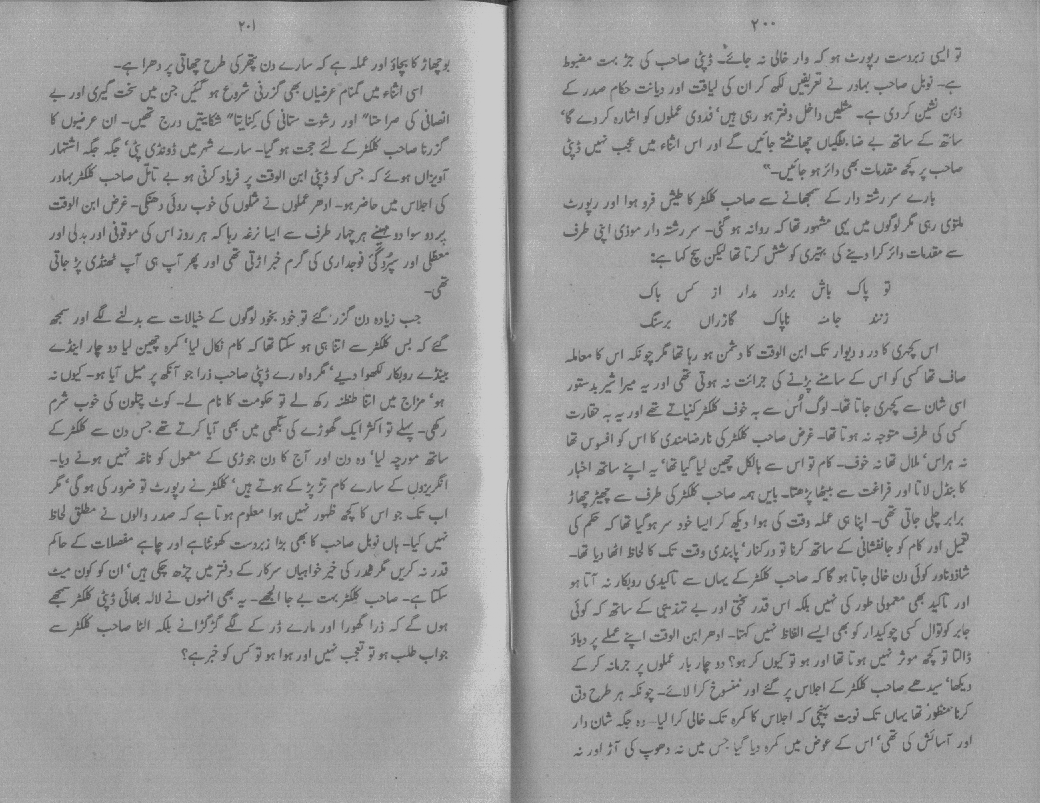 ۲۰۰
تو ایسی زبردست رپورٹ ہو کہ وار خالی نہ جائے۔ ڈپٹی صاحب کی جڑ بہت مضبوط
ہے۔ نوبل صاحب بہادر نے تعریفیں لکھ کر ان کی لیاقت اور دیانت حکام صدر کے
ذہن نشین کر دی ہے۔ مثلیں داخل دفتر ہو رہی ہیں‘ فدوی عملوں کو اشارہ کر دے گا‘
ساتھ کے ساتھ بے ضابطگیاں چھانٹتے جائیں گے اور اس اثناء میں عجب نہیں ڈپٹی
صاحب پر کچھ مقدمات بھی دائر ہو جائیں۔"
بارے سر رشتہ دار کے سمجھانے سے صاحب کلکٹر کا طیش فرو ہوا اور رپورٹ
ملتوی رہی مگر لوگوں میں یہی مشہور تھا کہ روانہ ہو گئی۔ سر رشتہ دار موذی اپنی طرف
سے مقدمات دائر کرا دینے کی بہتیری کوشش کرتا تھا لیکن سچ کہا ہے:
تو پاک باش برادر مدار از کس باک
زنند جامہ ناپاک گازراں برسنگ
اس کچہری کا در و دیوار تک ابن الوقت کا دشمن ہو رہا تھا مگر چونکہ اس کا معاملہ
صاف تھا کسی کو اس کے سامنے پڑنے کی جرائت نہ ہوتی تھی اور یہ میرا شیر بدستور
اسی شان سے کچہری جاتا تھا۔ لوگ اُس سے بہ خوف کلکٹر کنیاتے تھے اور یہ بہ حقارت
کسی کی طرف متوجہ نہ ہوتا تھا۔ غرض صاحب کلکٹر کی نارضامندی کا اس کو افسوس تھا
نہ ہراس‘ ملال تھا نہ خوف۔ کام تو اس سے بالکل چھین لیا گیا تھا‘ یہ اپنے ساتھ اخبار
کا بنڈل لاتا اور فراغت سے بیٹھا پڑھتا۔ بایں ہمہ صاحب کلکٹر کی طرف سے چھیڑ چھاڑ
برابر چلی جاتی تھی۔ اپنا ہی عملہ وقت کی ہوا دیکھ کر ایسا خود سر ہو گیا تھا کہ حکم کی
تعمیل اور کام کو جانفشانی کے ساتھ کرنا تو درکنار‘ پابندی وقت تک کا لحاظ اٹھا دیا تھا۔
شاذونادر کوئی دن خالی جاتا ہو گا کہ صاحب کلکٹر کے یہاں سے تاکیدی روبکار نہ آتا ہو
اور تاکید بھی معمولی طور کی نہیں بلکہ اس قدر سختی اور بے تہذیبی کے ساتھ کہ کوئی
جابر کوتوال کسی چوکیدار کو بھی ایسے الفاظ نہیں کہتا۔ ادھر ابن الوقت اپنے عملے پر دباؤ
ڈالتا تو کچھ موثر نہیں ہوتا تھا اور ہو تو کیوں کر ہو؟ دو چار بار عملوں پر جرمانہ کر کے
دیکھا‘ سیدھے صاحب کلکٹر کے اجلاس پر گئے اور منسوخ کرا لائے۔ چونکہ ہر طرح دق
کرنا منظور تھا یہاں تک نوبت پہنچی کہ اجلاس کا کمرہ تک خالی کرا لیا۔ وہ جگہ شان دار
اور آسائش کی تھی‘ اس کے عوض میں کمرہ دیا گیا جس میں نہ دھوپ کی آڑ اور نہ
۲۰۱
بوچھاڑ کا بچاؤ اور عملہ ہے کہ سارے دن پتھر کی طرح چھاتی پر دھرا ہے۔
اسی اثناء میں گمنام عرضیاں بھی گزرنی شروع ہو گئیں جن میں سخت گیری اور بے
انصافی کی صراحتا" اور رشوت ستانی کی کنایتا" شکایتیں درج تھیں۔ ان عرضیوں کا
گزرنا صاحب کلکٹر کے لئے حجت ہو گیا۔ سارے شہر میں ڈونڈی پٹی‘ جگہ جگہ اشتہار
آویزاں ہوئے کہ جس کو ڈپٹی ابن الوقت پر فریاد کرنی ہو بے تامل صاحب کلکٹر بہادر
کی اجلاس میں حاضر ہو۔ ادھر عملوں نے مثلوں کی خوب روئی دھنکی۔ غرض ابن الوقت
پر دو سوا دو مہینے ہر چہار طرف سے ایسا نرغہ رہا کہ ہر روز اس کی موقوفی اور بدلی اور
معطلی اور سپردگی فوجداری کی گرم خبر اڑتی تھی اور پھر آپ ہی آپ ٹھنڈی پڑ جاتی
تھی۔
جب زیادہ دن گزر گئے تو خود بخود لوگوں کے خیالات سے بدلنے لگے اور سمجھ
گئے کہ بس کلکٹر سے اتنا ہی ہو سکتا تھا کہ کام نکال لیا‘ کمرہ چھین لیا دو چار اینڈے
بینڈے روبکار لکھوا دیے‘ مگر واہ رے ڈپٹی صاحب ذرا جو آنکھ پر میل آیا ہو۔ کیوں نہ
ہو‘ مزاج میں اتنا طنطنہ رکھ لے تو حکومت کا نام لے۔ کوٹ پتلون کی خوب شرم
رکھی۔ پہلے تو اکثر ایک گھوڑے کی بگھی میں بھی آیا کرتے تھے جس دن سے کلکٹر کے
ساتھ مورچہ لیا‘ وہ دن اور آج کا دن جوڑی کے معمول کو ناغہ نہیں ہونے دیا۔
انگریزوں کے سارے کام تڑپڑ کے ہوتے ہیں‘ کلکٹر نے رپورٹ تو ضرور کی ہو گی‘ مگر
اب تک جو اس کا کچھ ظہور نہیں ہوا معلوم ہوتا ہے کہ صدر والوں نے مطلق لحاظ
نہیں کیا۔ ہاں نوبل صاحب کا بھی بڑا زبردست کھونٹا ہے اور چاہے مفصلات کے حاکم
قدر نہ کریں مگر غدر کی خیر خواہیاں سرکار کے دفتر میں چڑھ چکی ہیں‘ ان کو کون میٹ
سکتا ہے۔ صاحب کلکٹر بہت بے جا الجھے۔ یہ بھی انہوں نے لالہ بھائی ڈپٹی کلکٹر سمجھے
ہوں گے کہ ذرا گھورا اور مارے ڈر کے لگے گڑگڑانے بلکہ الٹا صاحب کلکٹر سے
جواب طلب ہو تو تعجب نہیں اور ہوا ہو تو کس کو خبر ہے؟